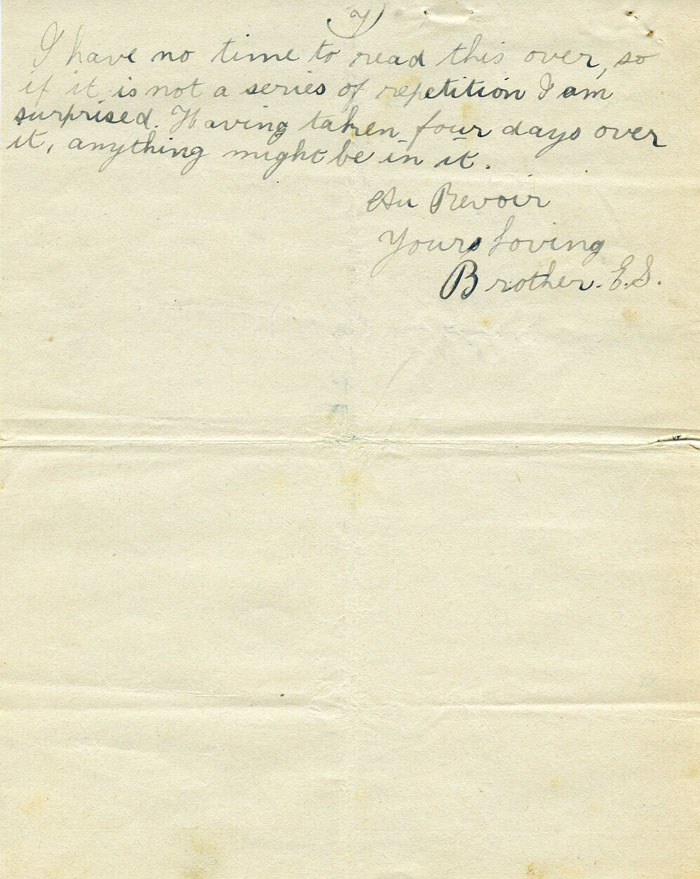 7)
I have no time to read this over, so
if it is not a series of repetition I am
surprised. Having taken four days over
it, anything might be in it.
Au Revoir
Yours Loving
Brother. E.S.